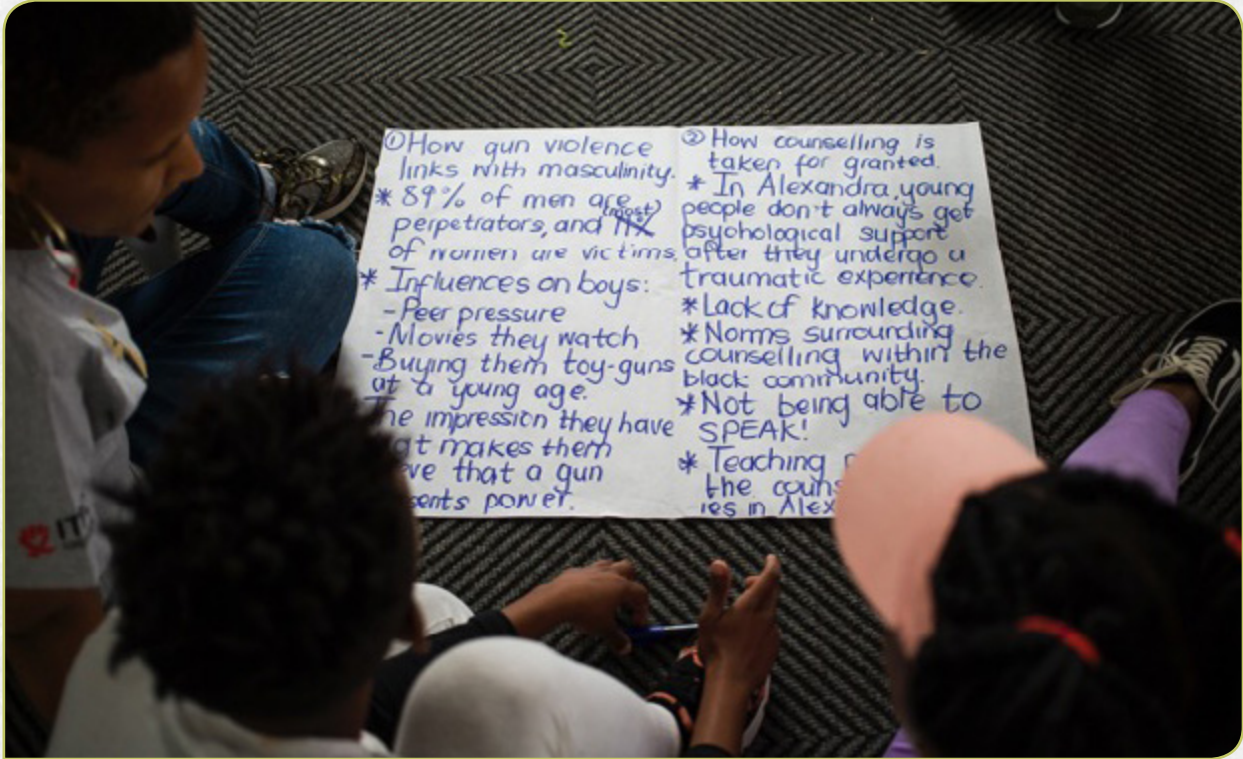 ① How gun violence
links with masculinity.
* 89% of men are
perpetrators, and (most)
of women are victims.
* Influences on boys:
- Peer pressure
- Movies they watch
- Buying them toy-guns
at a young age.
impression they have
makes them
that a gun
power.
② How counselling is
taken for granted.
* In Alexandra, young
people don't always get
psychological support
after they undergo a
traumatic experience.
* Lack of knowledge.
* Norms surrounding
counselling within the
black community.
* Not being able to
SPEAK!
* Teaching
the
in